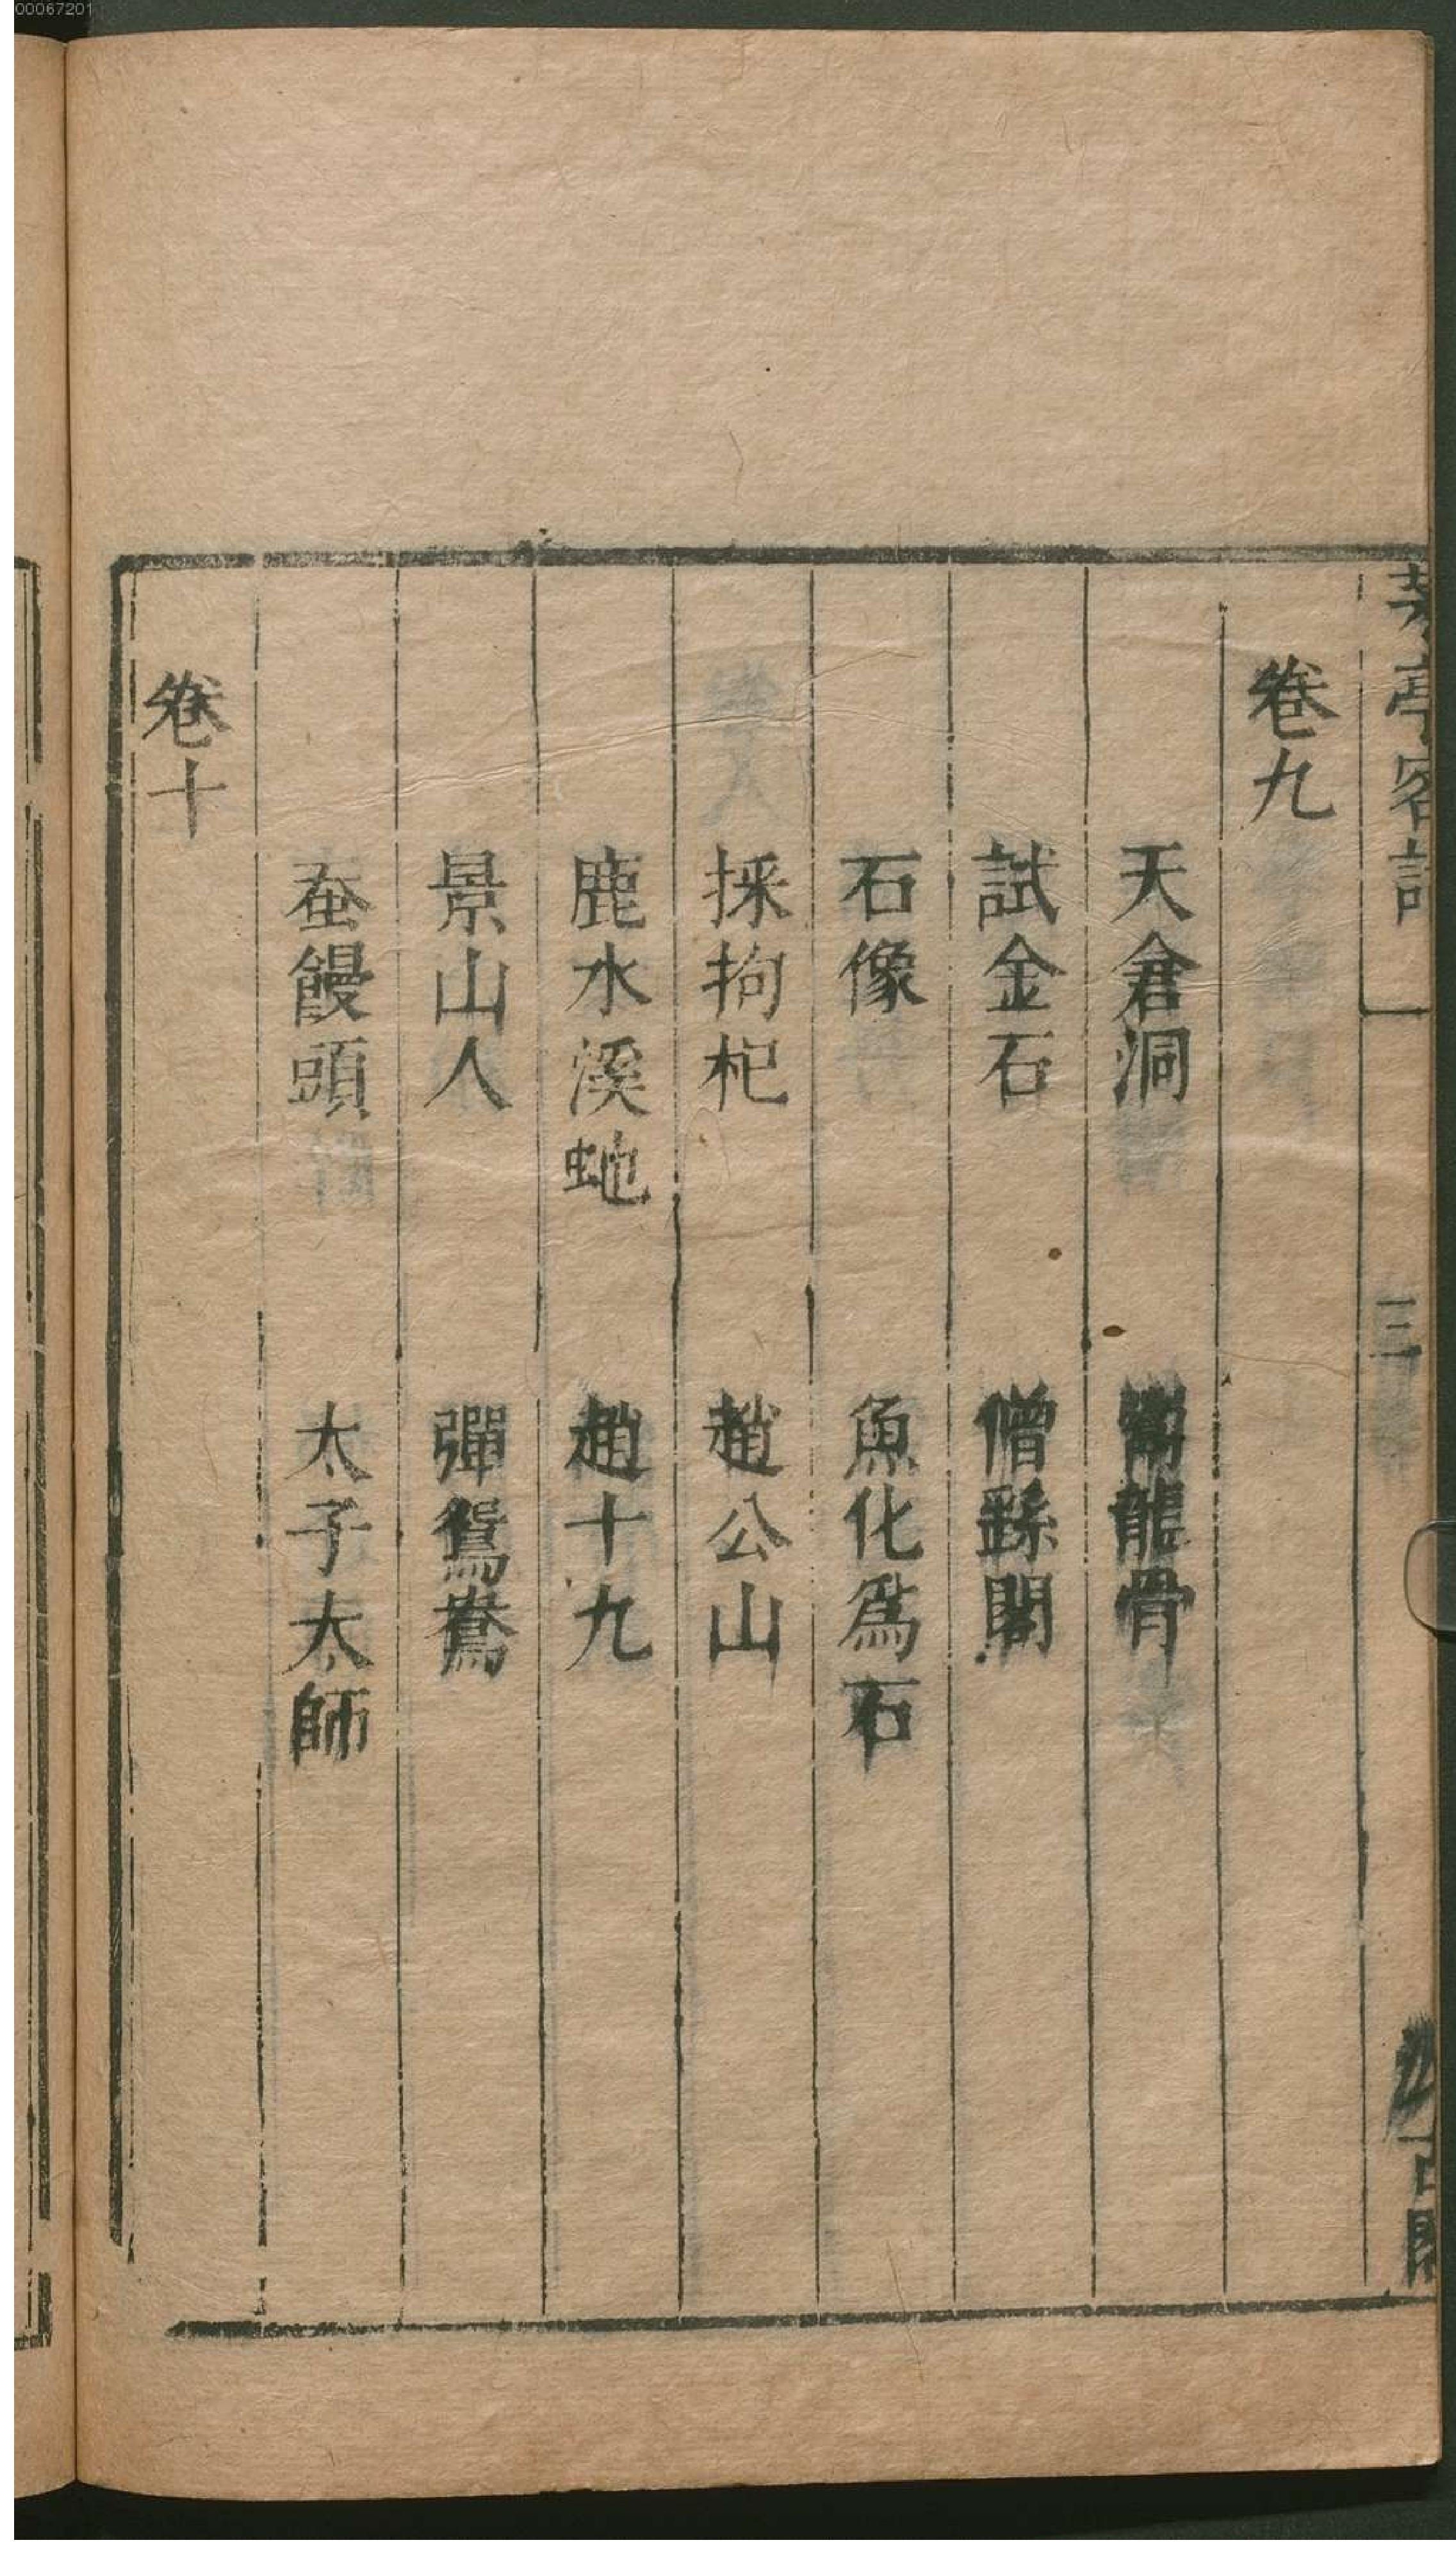 00067201
亭客話
三
汲古閣
卷九
天倉洞　鬻龍骨
試金石　僧繇
石像　魚化爲石
採拘杞　趙公山
鹿水溪虵　趙十九
景山人　彈鴛鴦
蚕饅頭　太子太師
卷十